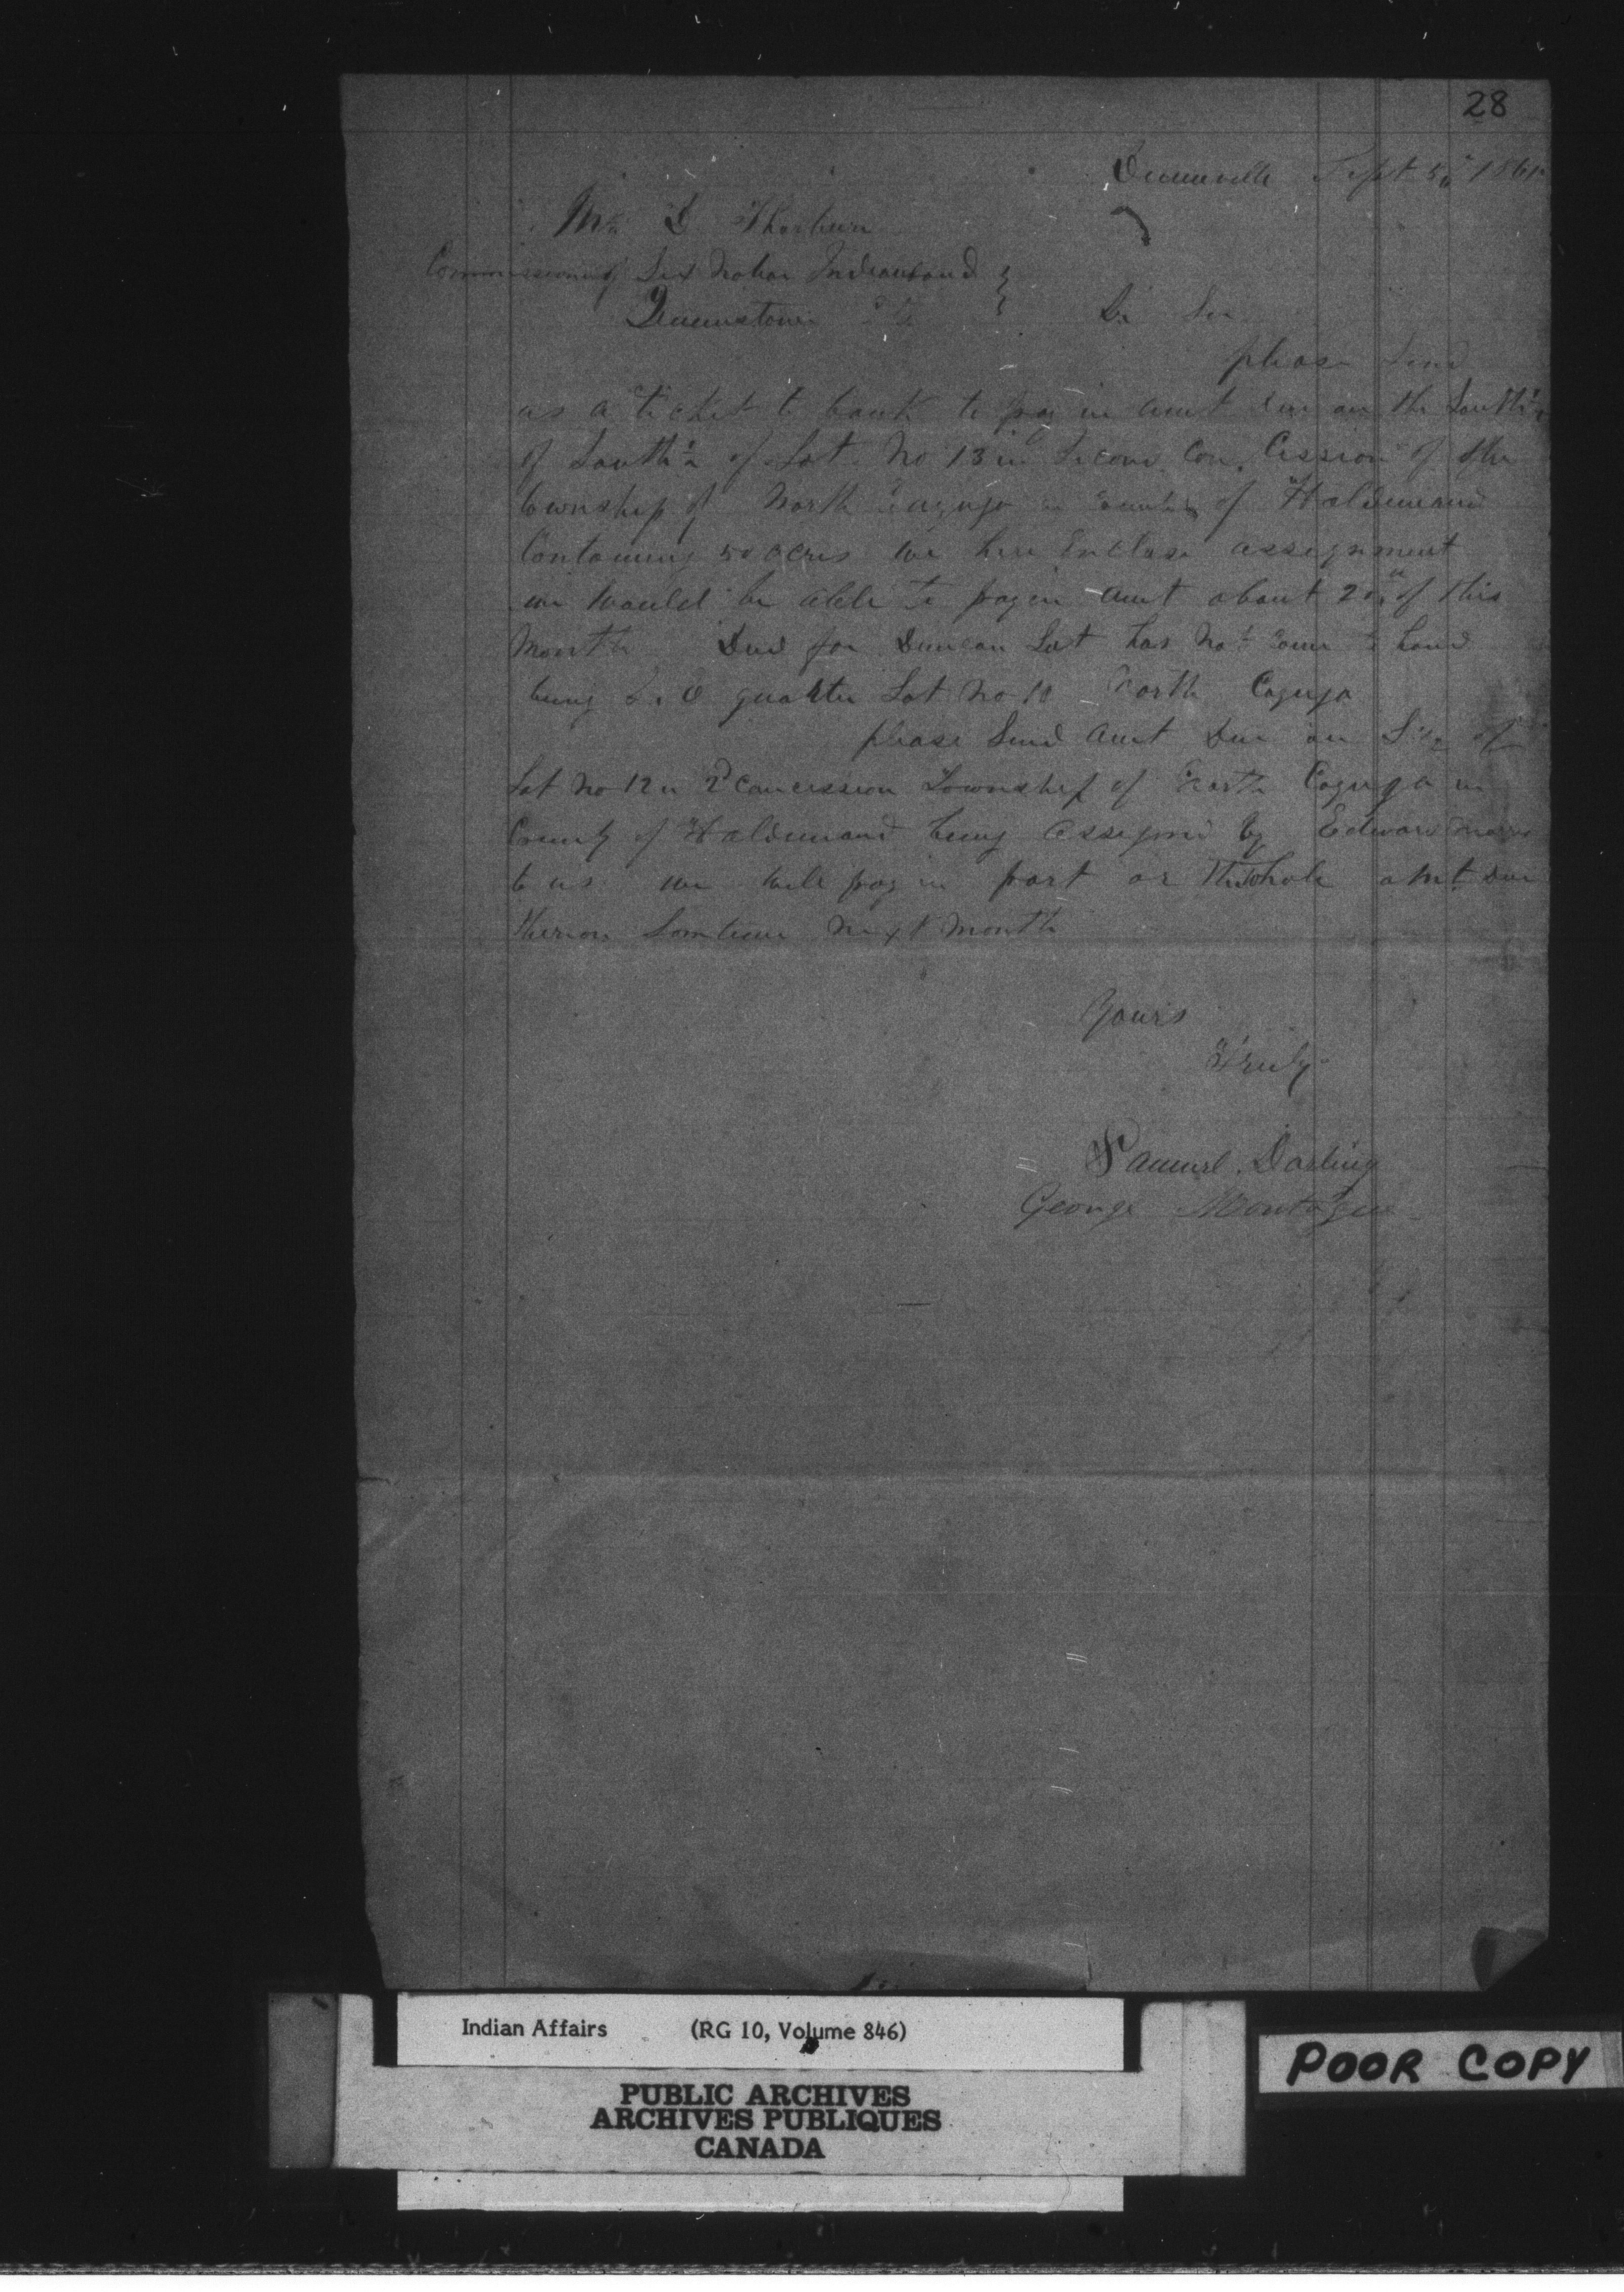 28
Dunnville Sept 5th 1861
Mr D Thorburn
Commissioner Six Nation Indian Land
Queenstown Dr Sir
please Send
us a ticket to bank to pay in amt due on the South ½
of South ½ of Lot No 13 in Second Con. Cession of the
township of North Cayuga in County of Haldimand
Containing 50 acres we here Enclose assignment
we would be able to pay in amt about 20th of this
Month Deed for Duncan Lot has not come to hand
being quarter Lot No 10 North Cayuga
please Send amt Due on S ½ of
Lot No 12 in 2d Concession Township of North Cayuga in
County of Haldimand being assigned by Edward
to us we will pay in part or the whole amt Due
thereon Somtime next month
Yours
Truly
Samuel Darling
George Montague
Indian Affairs (RG 10, Volume 846)
PUBLIC ARCHIVES
ARCHIVES PUBLIQUES
CANADA
POOR COPY